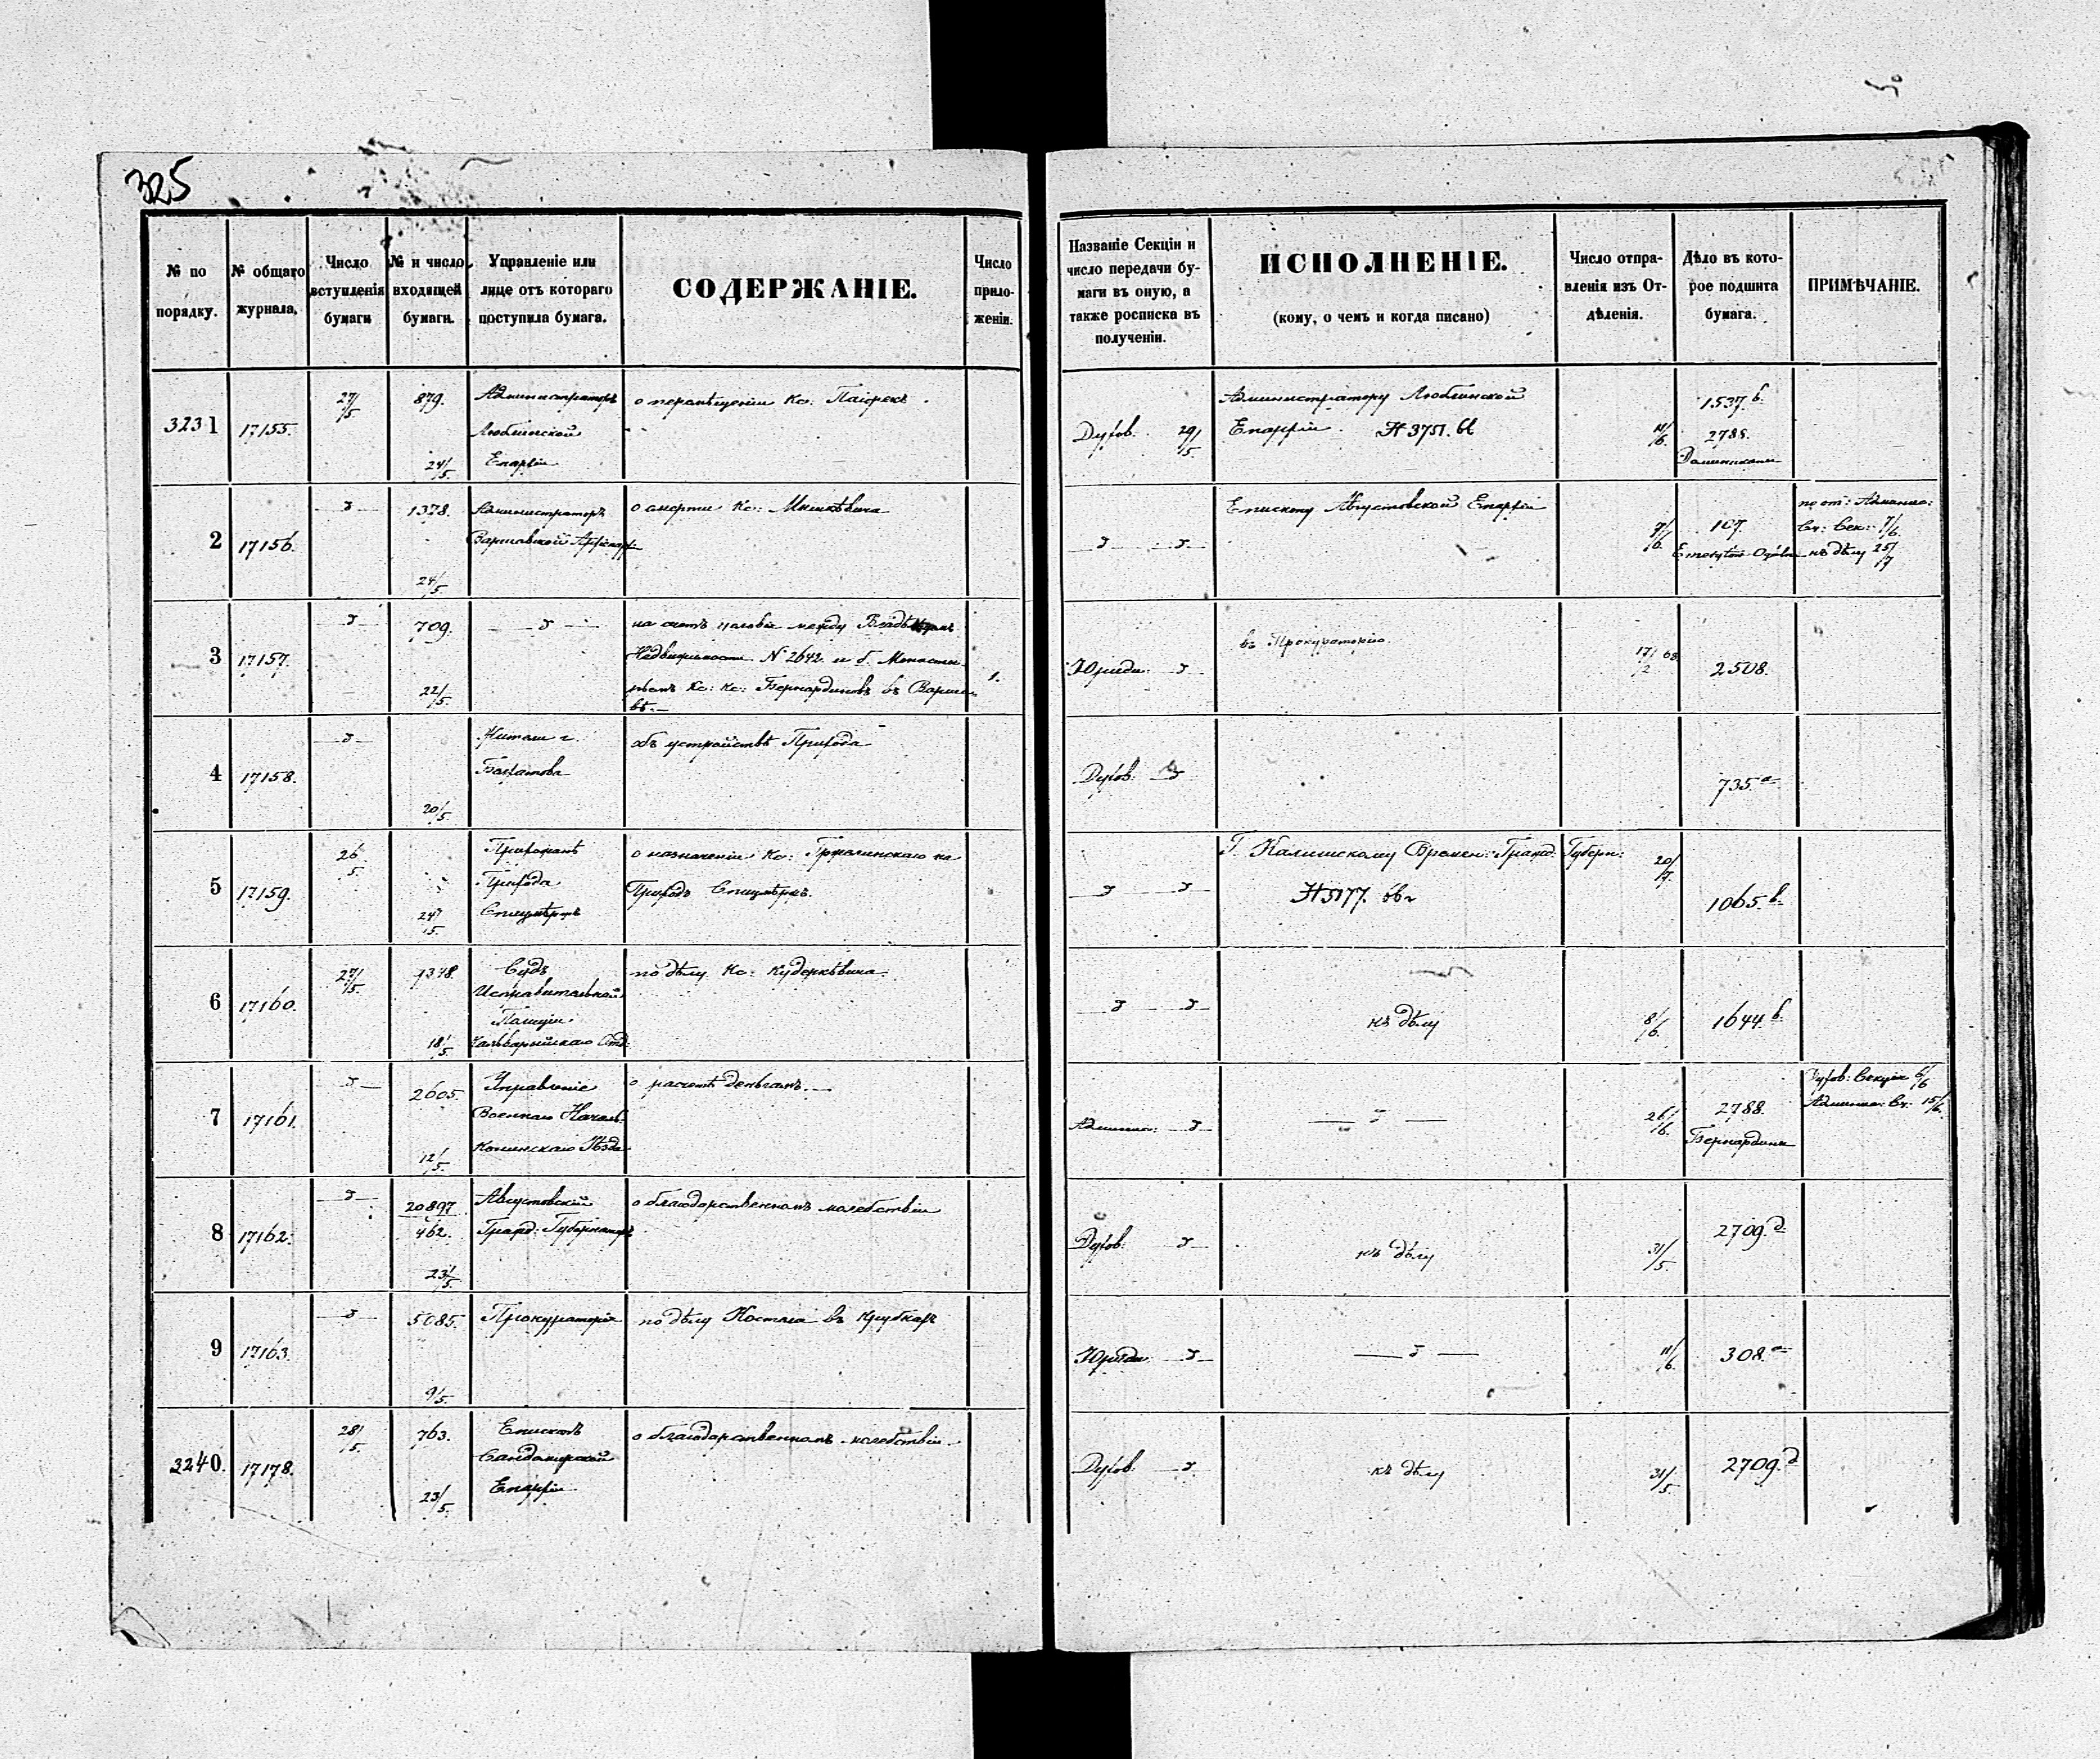 325
№ по порядку.
№ общаго журнала.
Число вступленія бумаги
№ и число входящей бумаги.
Управленіе или лице отъ котораго поступила бумага.
СОДЕРЖАНІЕ.
Число приложеніи.
Названіе Секціи и число передачи бумаги въ оную, а также росписка въ полученіи.
ИСПОЛНЕНІЕ.
(кому, о чемъ и когда писано)
Число отправленія изъ Отдѣленія.
Дѣло въ которое подшита бумага.
ПРИМѢЧАНІЕ.
3231 17155. 27/5 879. 24/5 Администраторъ Люблинской Епархіи
о перемѣщеніи Кс:
Духов. 29/5 Администратору Люблинской Епархіи. № 3751. 11/6 1537.в. 2788. Доминикане
2 17156. 1378. 24/5 Администраторъ Варшавской Архіепар:
о смерти Кс: Мишкѣвича
Епископу Августовской Епархіи 7/6 167. къ дѣлу 25/7
3 17157. 709. 22/5
на счетъ условіе между
Недвижимости № 2642 и б. Монасты-
ремъ Кс: Кс: Бернардиновъ въ Варша-
вѣ.— 1.
Юриди: въ Прокураторію. 17/2 68. 2508.
4 17158. 20/5 Жители г.
объ устройствѣ Прихода
Духов. 735.а
5 17159. 26/5 24/5 Прихожане Прихода
о назначеніи Кс: на
Приходъ
Г. Калишскому Времен: Гражд: Губерн: № 5177. 20/7. 1065.в.
6 17160. 27/5. 1348. 18/5. Судъ Исправительной Полиціи Кальварійскаго Отд:
по дѣлу Кс: Кудеркѣвича.
къ дѣлу 8/6. 1644.в.
7 17161. 2605. 12/5. Управленіе Военнаго Началь: Конинскаго Уѣзда
о расчетѣ деньгамъ.—
Админис: 26/6. 2788. Бернардины Духов: Секція 6/6 Админис: Се: 15/6.
8 17162. 20897 462. 23/5. Августовскій Гражд: Губернаторъ
о благодарственномъ молебствіи
Духов. къ дѣлу 31/5. 2709.д.
9 17163. 5085. 9/5. Прокураторія
по дѣлу Костела въ
Юриди: 11/6. 308.а
3240. 17178. 28/5. 763. 23/5. Епископъ Сандомирской Епархіи
о благодарственномъ молебствіи
Духов. къ дѣлу 31/5. 2709.д